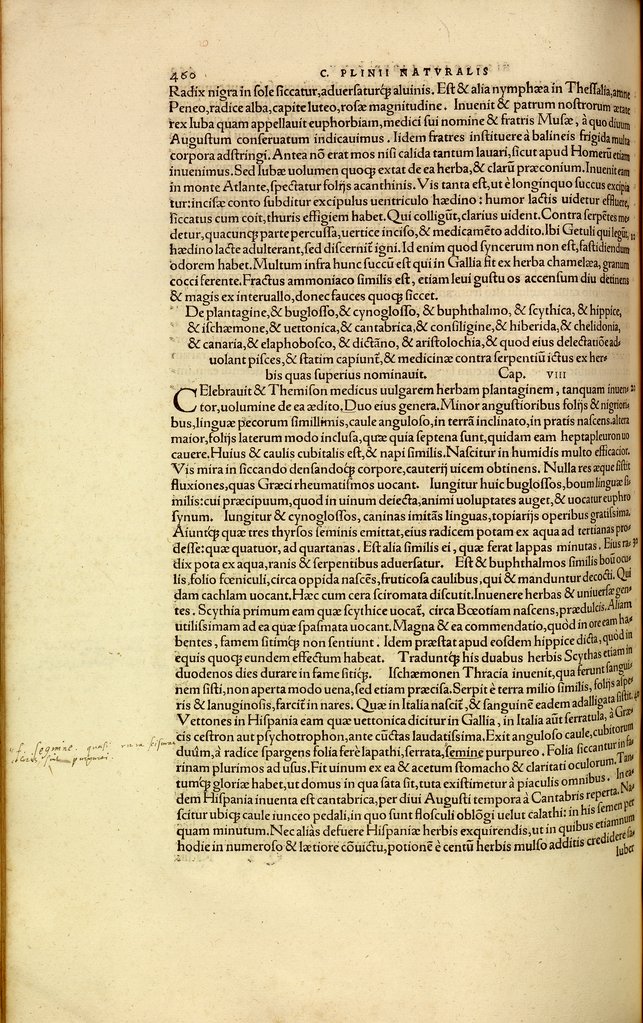 460
C. PLINII NATVRALIS
Radix nigra in sole siccatur, aduersaturq̃ aluinis. Est & alia nymphæa in Thessalia, amne
Peneo, radice alba, capite luteo, rosæ magnitudine. Inuenit & patrum nostrorum ætate
rex Iuba quam appellauit euphorbiam, medici sui nomine & fratris Musæ, à quo diuum
Augustum conseruatum indicauimus. Iidem fratres instituere à balineis frigida multa
corpora adstringi. Antea nõ erat mos nisi calida tantum lauari, sicut apud Homerũ etiam
inuenimus. Sed Iubæ uolumen quoq̃ extat de ea herba, & clarũ præconium. Inuenit eam
in monte Atlante, spectatur folijs acanthinis. Vis tanta est, ut è longinquo succus excipia
tur: incisæ conto subditur excipulus uentriculo hædino: humor lactis uidetur effluere,
siccatus cum coit, thuris effigiem habet. Qui colligũt, clarius uident. Contra serpẽtes me⸗
detur, quacunq̃ parte percussa, uertice inciso, & medicamẽto addito. Ibi Getuli qui legũt,
hædino lacte adulterant, sed discernit̃ igni. Id enim quod syncerum non est, fastidiendum
odorem habet. Multum infra hunc succũ est qui in Gallia fit ex herba chamelæa, granum
cocci ferente. Fractus ammoniaco similis est, etiam leui gustu os accensum diu detinens
& magis ex interuallo, donec fauces quoq̃ siccet.
De plantagine, & buglosso, & cynoglosso, & buphthalmo, & scythica, & hippice,
& ischæmone, & uettonica, & cantabrica, & consiligine, & hiberida, & chelidonia,
& canaria, & elaphobosco, & dictãno, & aristolochia, & quod eius delectatiõe ad⸗
uolant pisces, & statim capiunt̃, & medicinæ contra serpentiũ ictus ex her⸗
bis quas superius nominauit. Cap. VIII
CElebrauit & Themison medicus uulgarem herbam plantaginem, tanquam inuen⸗
tor, uolumine de ea ædito. Duo eius genera. Minor angustioribus folijs & nigriori⸗
bus, linguæ pecorum simillimis, caule anguloso, in terrã inclinato, in pratis nascens. altera
maior, folijs laterum modo inclusa, quæ quia septena sunt, quidam eam heptapleuron uo
cauere. Huius & caulis cubitalis est, & napi similis. Nascitur in humidis multo efficacior.
Vis mira in siccando densandoq̃ corpore, cauterij uicem obtinens. Nulla res æque sistit
fluxiones, quas Græci rheumatismos uocant. Iungitur huic buglossos, boum linguæ si⸗
milis: cui præcipuum, quod in uinum deiecta, animi uoluptates auget, & uocatur euphro
synum. Iungitur & cynoglossos, caninas imitãs linguas, topiarijs operibus gratissima.
Aiuntq̃ quæ tres thyrsos seminis emittat, eius radicem potam ex aqua ad tertianas pro⸗
desse: quæ quatuor, ad quartanas. Est alia similis ei, quæ ferat lappas minutas. Eius ra⸗
dix pota ex aqua, ranis & serpentibus aduersatur. Est & buphthalmos similis boũ ocu⸗
lis, folio fœniculi, circa oppida nascẽs, fruticosa caulibus, qui & manduntur decocti. Qui
dam cachlam uocant. Hæc cum cera sciromata discutit. Inuenere herbas & uniuersæ gen⸗
tes. Scythia primum eam quæ scythice uocat̃, circa Bœotiam nascens, prædulcis. Aliam
utilissimam ad ea quæ spasmata uocant. Magna & ea commendatio, quòd in ore eam ha⸗
bentes, famem sitimq̃ non sentiunt. Idem præstat apud eosdem hippice dicta, quòd in
equis quoq̃ eundem effectum habeat. Traduntq̃ his duabus herbis Scythas etiam in
duodenos dies durare in fame sitiq̃. Ischæmonen Thracia inuenit, qua ferunt sangui⸗
nem sisti, non aperta modo uena, sed etiam præcisa. Serpit è terra milio similis, folijs aspe
ris & lanuginosis, farcit̃ in nares. Quæ in Italia nascit̃, & sanguinẽ eadem adalligata sistit.
Vettones in Hispania eam quæ uettonica dicitur in Gallia, in Italia aũt serratula, à Græ⸗
cis cestron aut psychotrophon, ante cũctas laudatissima. Exit anguloso caule, cubitorum
duûm, à radice spargens folia ferè lapathi, serrata, semine purpureo. Folia siccantur in fa⸗
rinam plurimos ad usus. Fit uinum ex ea & acetum stomacho & claritati oculorum. Tan
tumq̃ gloriæ habet, ut domus in qua sata sit, tuta existimetur à piaculis omnibus. In ea⸗
dem Hispania inuenta est cantabrica, per diui Augusti tempora à Cantabris reperta. Na⸗
scitur ubiq̃ caule iunceo pedali, in quo sunt flosculi oblõgi uelut calathi: in his semen per
quam minutum. Nec aliàs defuere Hispaniæ herbis exquirendis, ut in quibus etiamnum
hodie in numeroso & lætiore cõuictu, potionẽ è centũ herbis mulso additis credidere sa⸗
luber
f. segmine